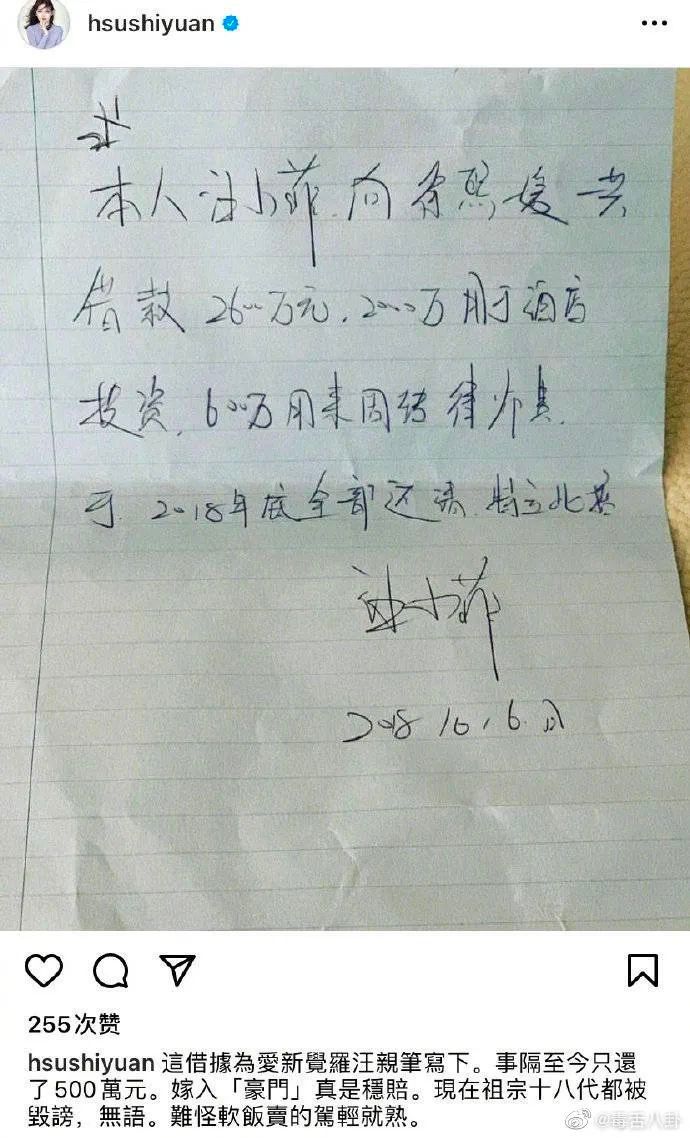 hsushiyuan
本人汪小菲向徐熙媛共
借款2600万元，2000万用于酒店
投资，600万用来周转律师费，
于2018年底全部还清，特立此
汪小菲
255次赞
hsushiyuan 這借據為愛新覺羅汪親筆寫下。事隔至今只還
了500萬元。嫁入「豪門」真是穩賠。現在祖宗十八代都被
毀謗，無語。難怪軟飯賣的駕輕就熟。
@毒舌八卦